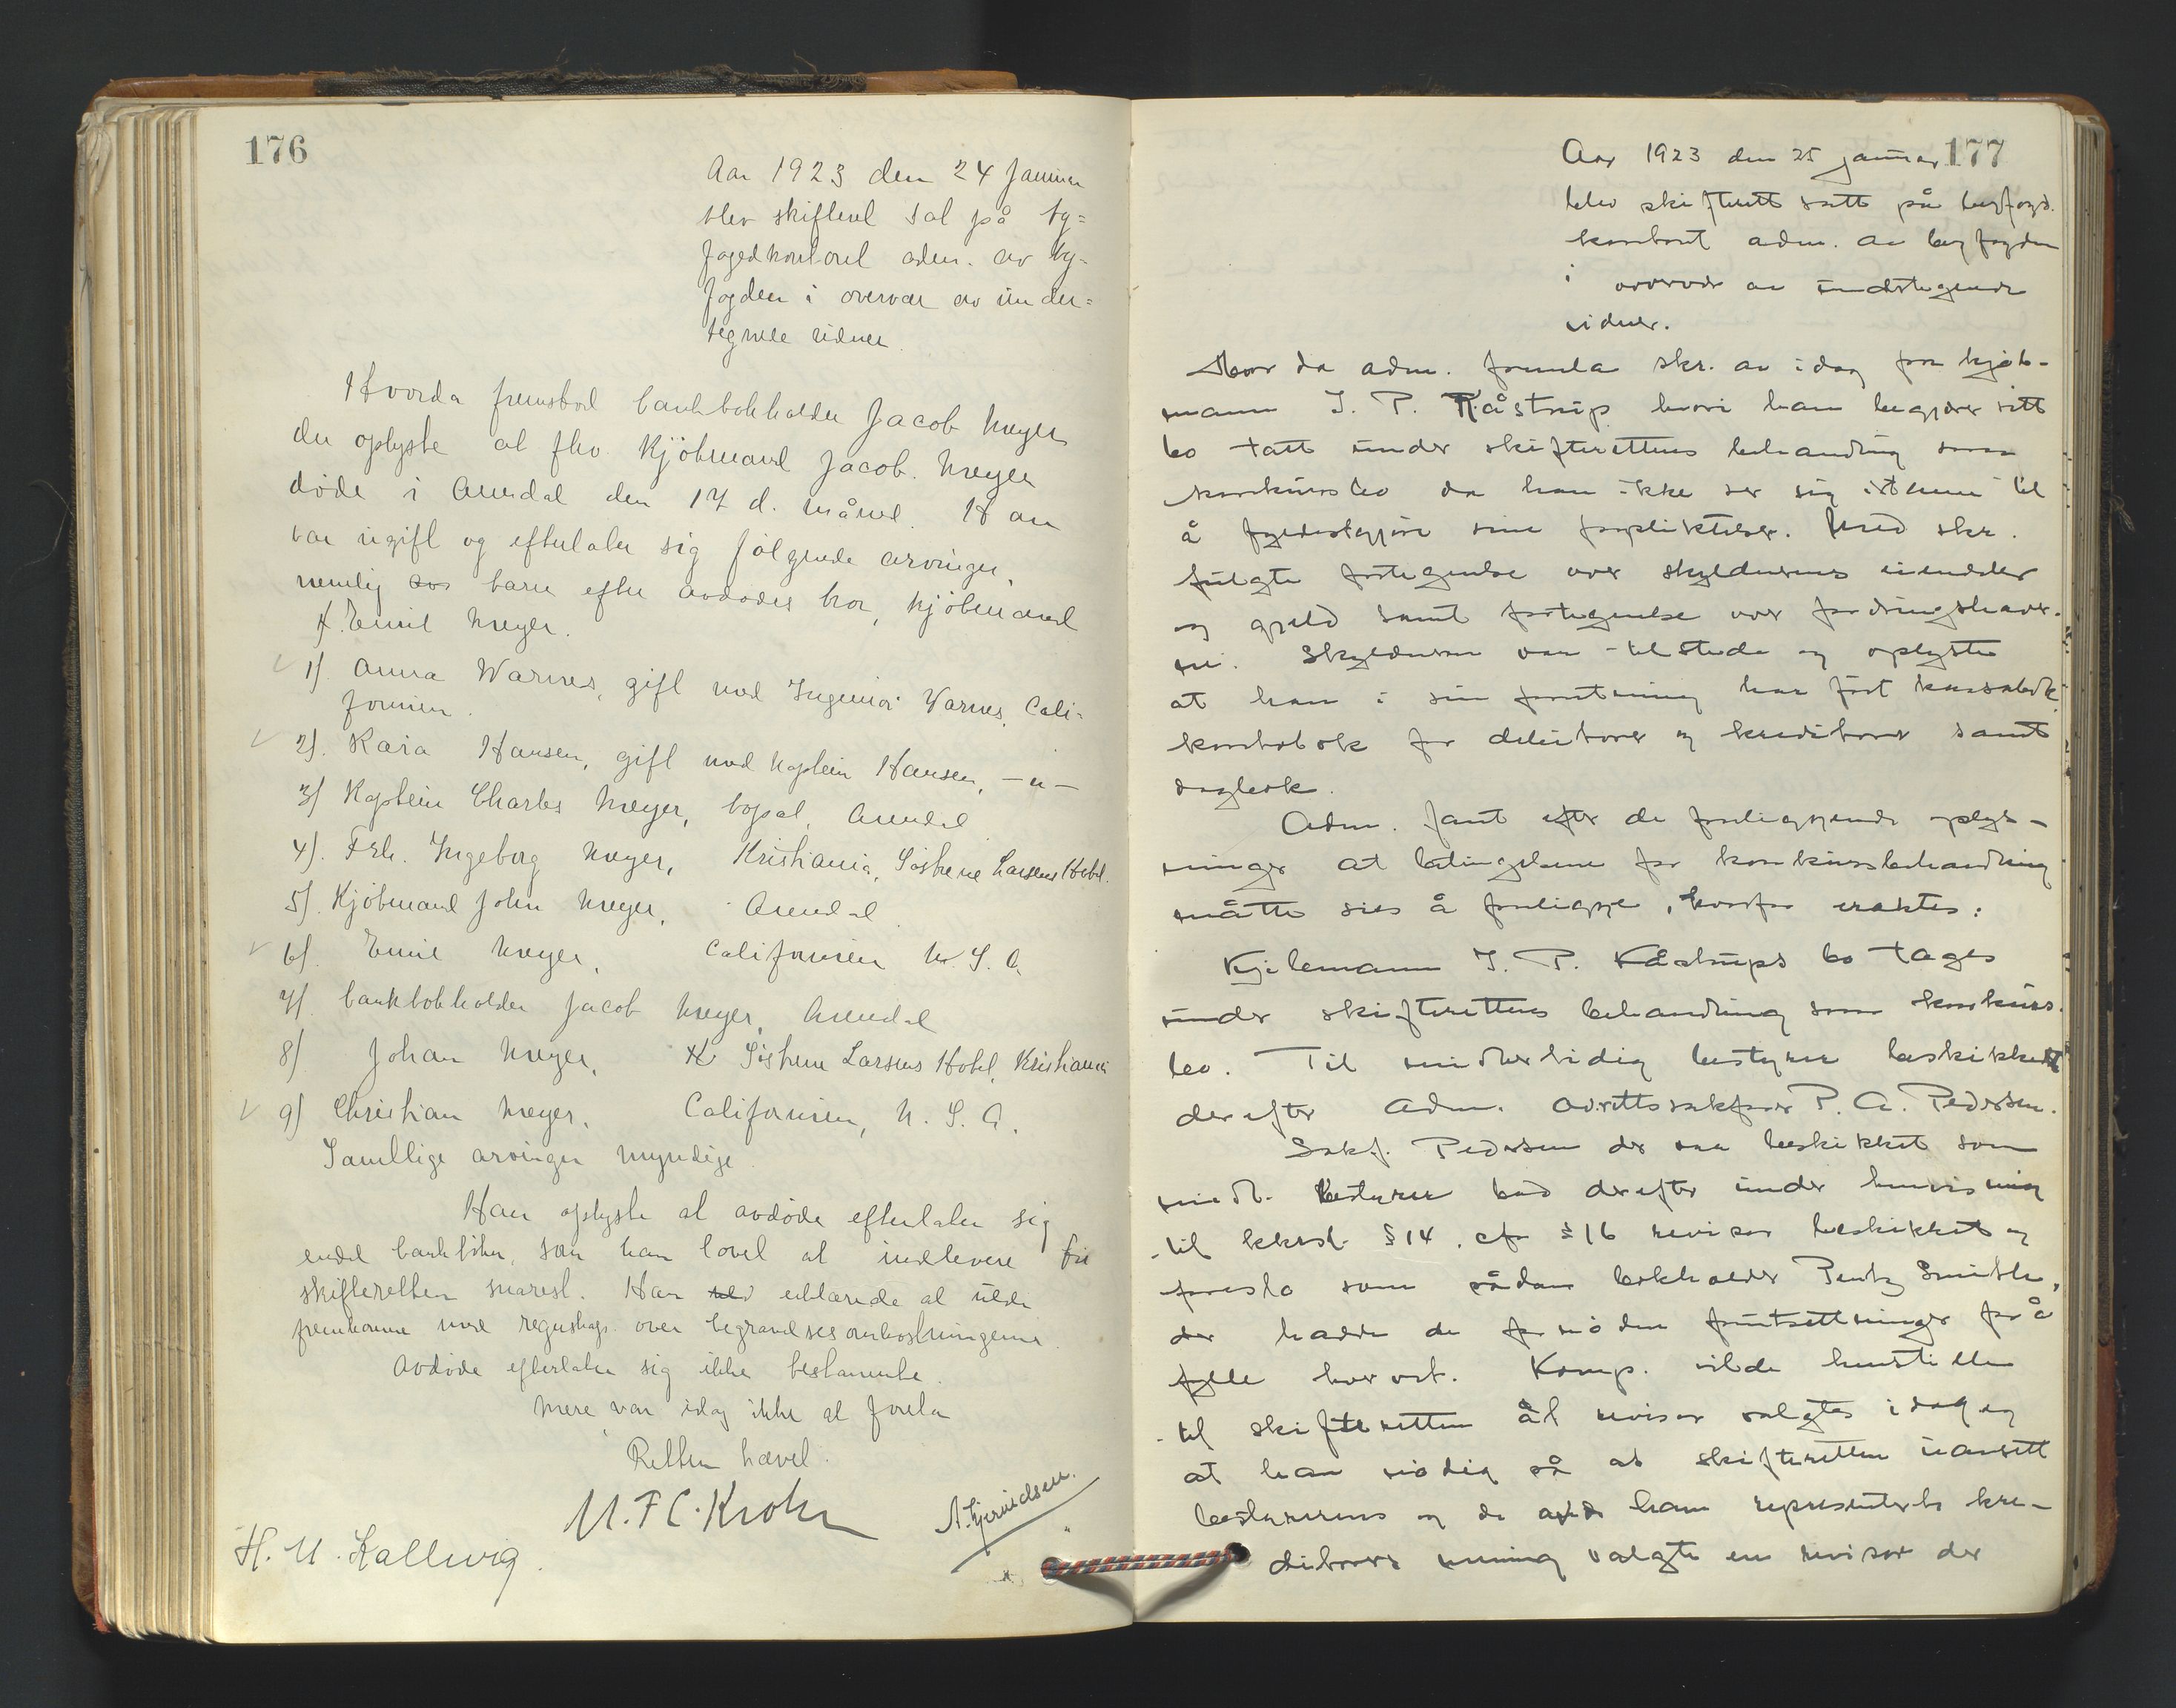 176
Aar 1923 den 24 Januar
blev skifteret sat på by-
fogedkontoret adm. av by-
fogden i overvær av under-
tegnede vidner.
Hvorda fremstod bankbokholder Jacob Meyer
der oplyste at fhv. kjöbmand Jacob Meyer
döde i Arendal den 17 d. måned. Han
var ugift og efterlater sig følgende arvinger,
nemlig barn efter avdødes bror, kjöbmand
Emil Meyer.
1) Anna Warnes, gift med Ingeniör Warnes, Cali-
fornien.
2). Kaia Hansen, gift med kaptein Hansen, –"–
3) Kaptein Charles Meyer, bopæl, Arendal
4). Frk. Ingeborg Meyer, Kristiania, Söstrene Larsens Hotel.
5). Kjöbmand John Meyer, Arendal
6). Emil Meyer, Californien U. S. A.
7) bankbokholder Jacob Meyer, Arendal
8) Johan Meyer, Söstrene Larsens Hotel, Kristiania
9) Christian Meyer, Californien, U. S. A.
Samtlige arvinger myndige.
Han oplyste at avdøde efterlater sig
endel bankböker, som han lovet at indlevere til
skifteretten snarest. Han erklærede at ville
fremkomme med regnskap over begravelsesomkostningerne.
Avdøde efterlater sig ikke testamente.
Mere var idag ikke at foreta
Retten hævet.
M. F. C. Krohn
H. U. Kallevig.
177
Aar 1923 den 25 januar
blev skifterett satt på byfogd.
kontoret adm. av byfogden
i overvær av undertegnende
vidner.
Hvor da adm. fremla skr. av idag fra kjøb-
mann J. P. Kåstrup hvori han begjærer sitt
bo tatt under skifterettens behandling som
konkursbo da han ikke ser sig istann til
å fyldestgjøre sine forpliktelser. Med skr.
fulgte fortegnelse over skyldnerens eiendeler
og gjeld samt fortegnelse over fordringshaver-
ne. Skyldneren var tilstede og oplyste
at han i sin forretning har ført kassabok
kontobok for debitorer og kreditorer samt
dagbok.
Adm. fant efter de foreliggende oplys-
ninger at betingelsene for konkursbehandling
måtte sies å foreligge, hvorfor eraktes:
Kjøbmann J. P. Kåstrups bo tages
under skifterettens behandling som konkurs-
bo. Til midlertidig bestyrer beskikket
derefter adm. overrettssakfører P. A. Pedersen.
Sakf. Pedersen der var beskikket som
midl. bestyrer bad derefter under henvisning
til kksl. § 14, cfr § 16 revisor beskikket og
foreslo som sådan bokholder Pentz Smith,
der hadde de fornødne forutsetninger for å
fylle hvervet. Komp. vilde henstille
til skifteretten at revisor valgtes idag og
at han nødig så at skifteretten uansett
bestyrerens og de av ham representerte kre-
ditorers mening valgte en revisor der